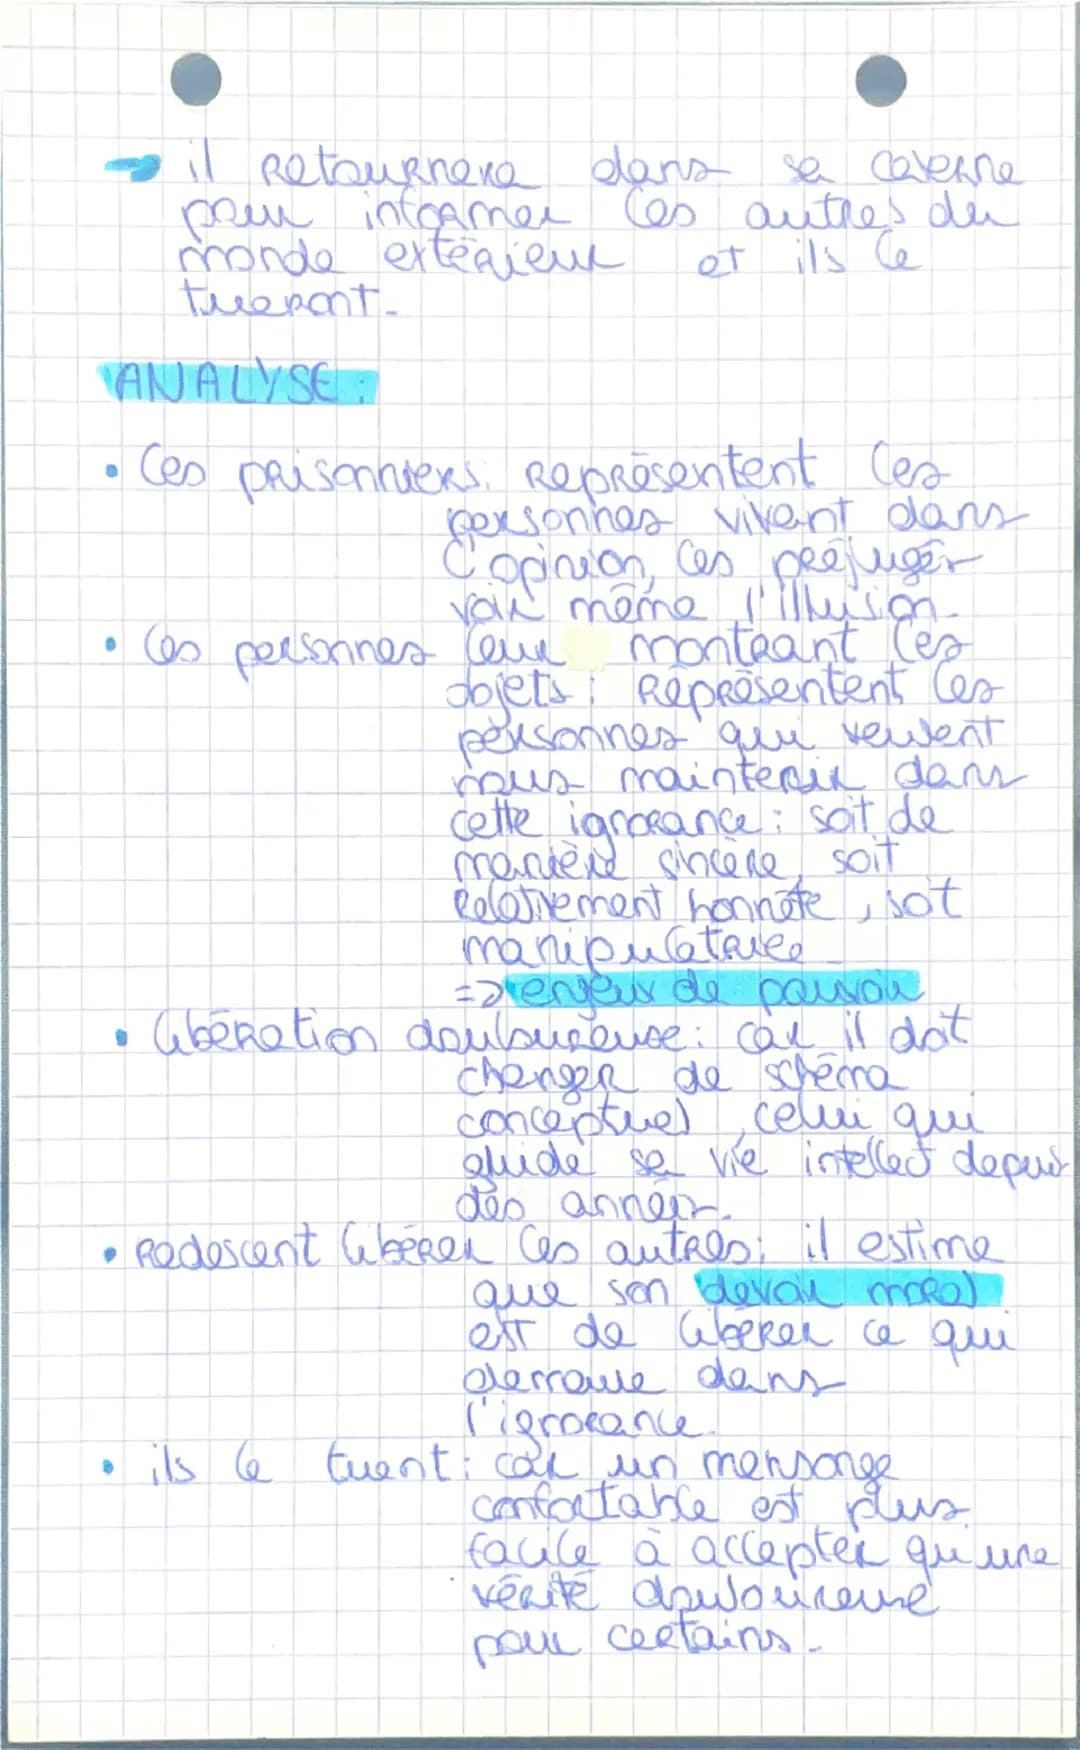 → il retournera dans sa caverne
pour informer les autres du
monde extérieur et ils le
tueront.
ANALYSE :
• les prisonniers : représentent les
personnes vivant dans
l'opinion, les préjuger
voir même l'illusion.
• les personnes leur montrant les
objets : représentent les
personnes qui veulent
nous maintenir dans
cette ignorance : soit de
manière sincère, soit
relativement honnête, soit
manipulatrice
=> enjeux de pouvoir
• libération douloureuse : car il doit
changer de schéma
conceptuel, celui qui
guide sa vie intellect depuis
des années.
• redescent libérer les autres : il estime
que son devoir moral
est de libérer ce qui
demeure dans
l'ignorance.
• ils le tuent : car un mensonge
confortable est plus
facile à accepter qu'une
vérité douloureuse
pour certains.